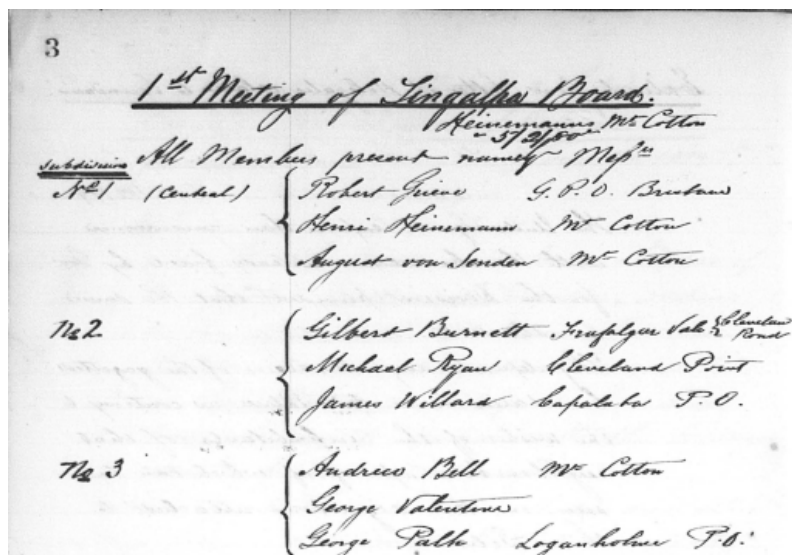 3
1st Meeting of Tingalpa Board.
Heinemanns Mt Cotton
All Members present namely Messrs
Subdivision
No 1 (Central) Robert Grieve G. P. O. Brisbane
Henri Heinemann Mt Cotton
August von Senden Mt Cotton
No 2 Gilbert Burnett Trafalgar Vale Cleveland Road
Michael Ryan Cleveland Point
James Willard Capalaba P.O.
No 3 Andrew Bell Mt Cotton
George Valentine
George Palk Loganholme P.O.